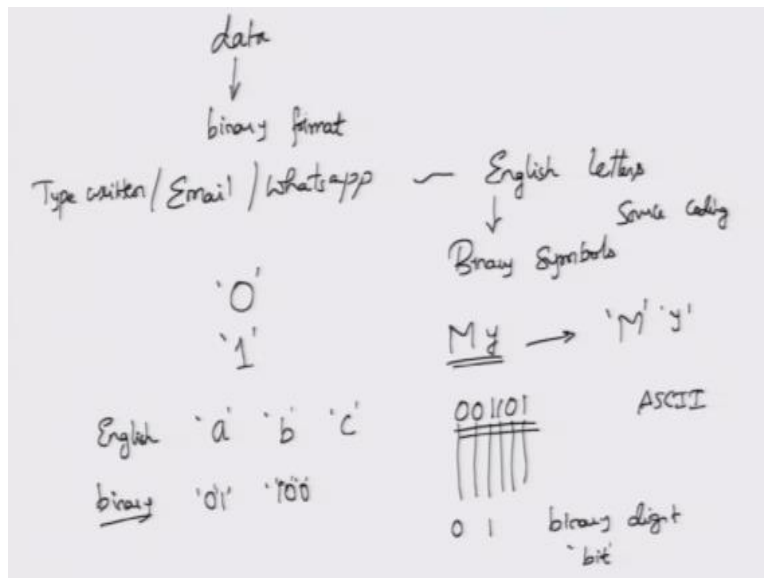 data
binary format
Type written / Email / Whatsapp — English letters
Source coding
Binary Symbols
'0'
'1'
My → 'M' 'y'
English 'a' 'b' 'c'
001101 ASCII
binary '01' '100'
0 1 binary digit
'bit'